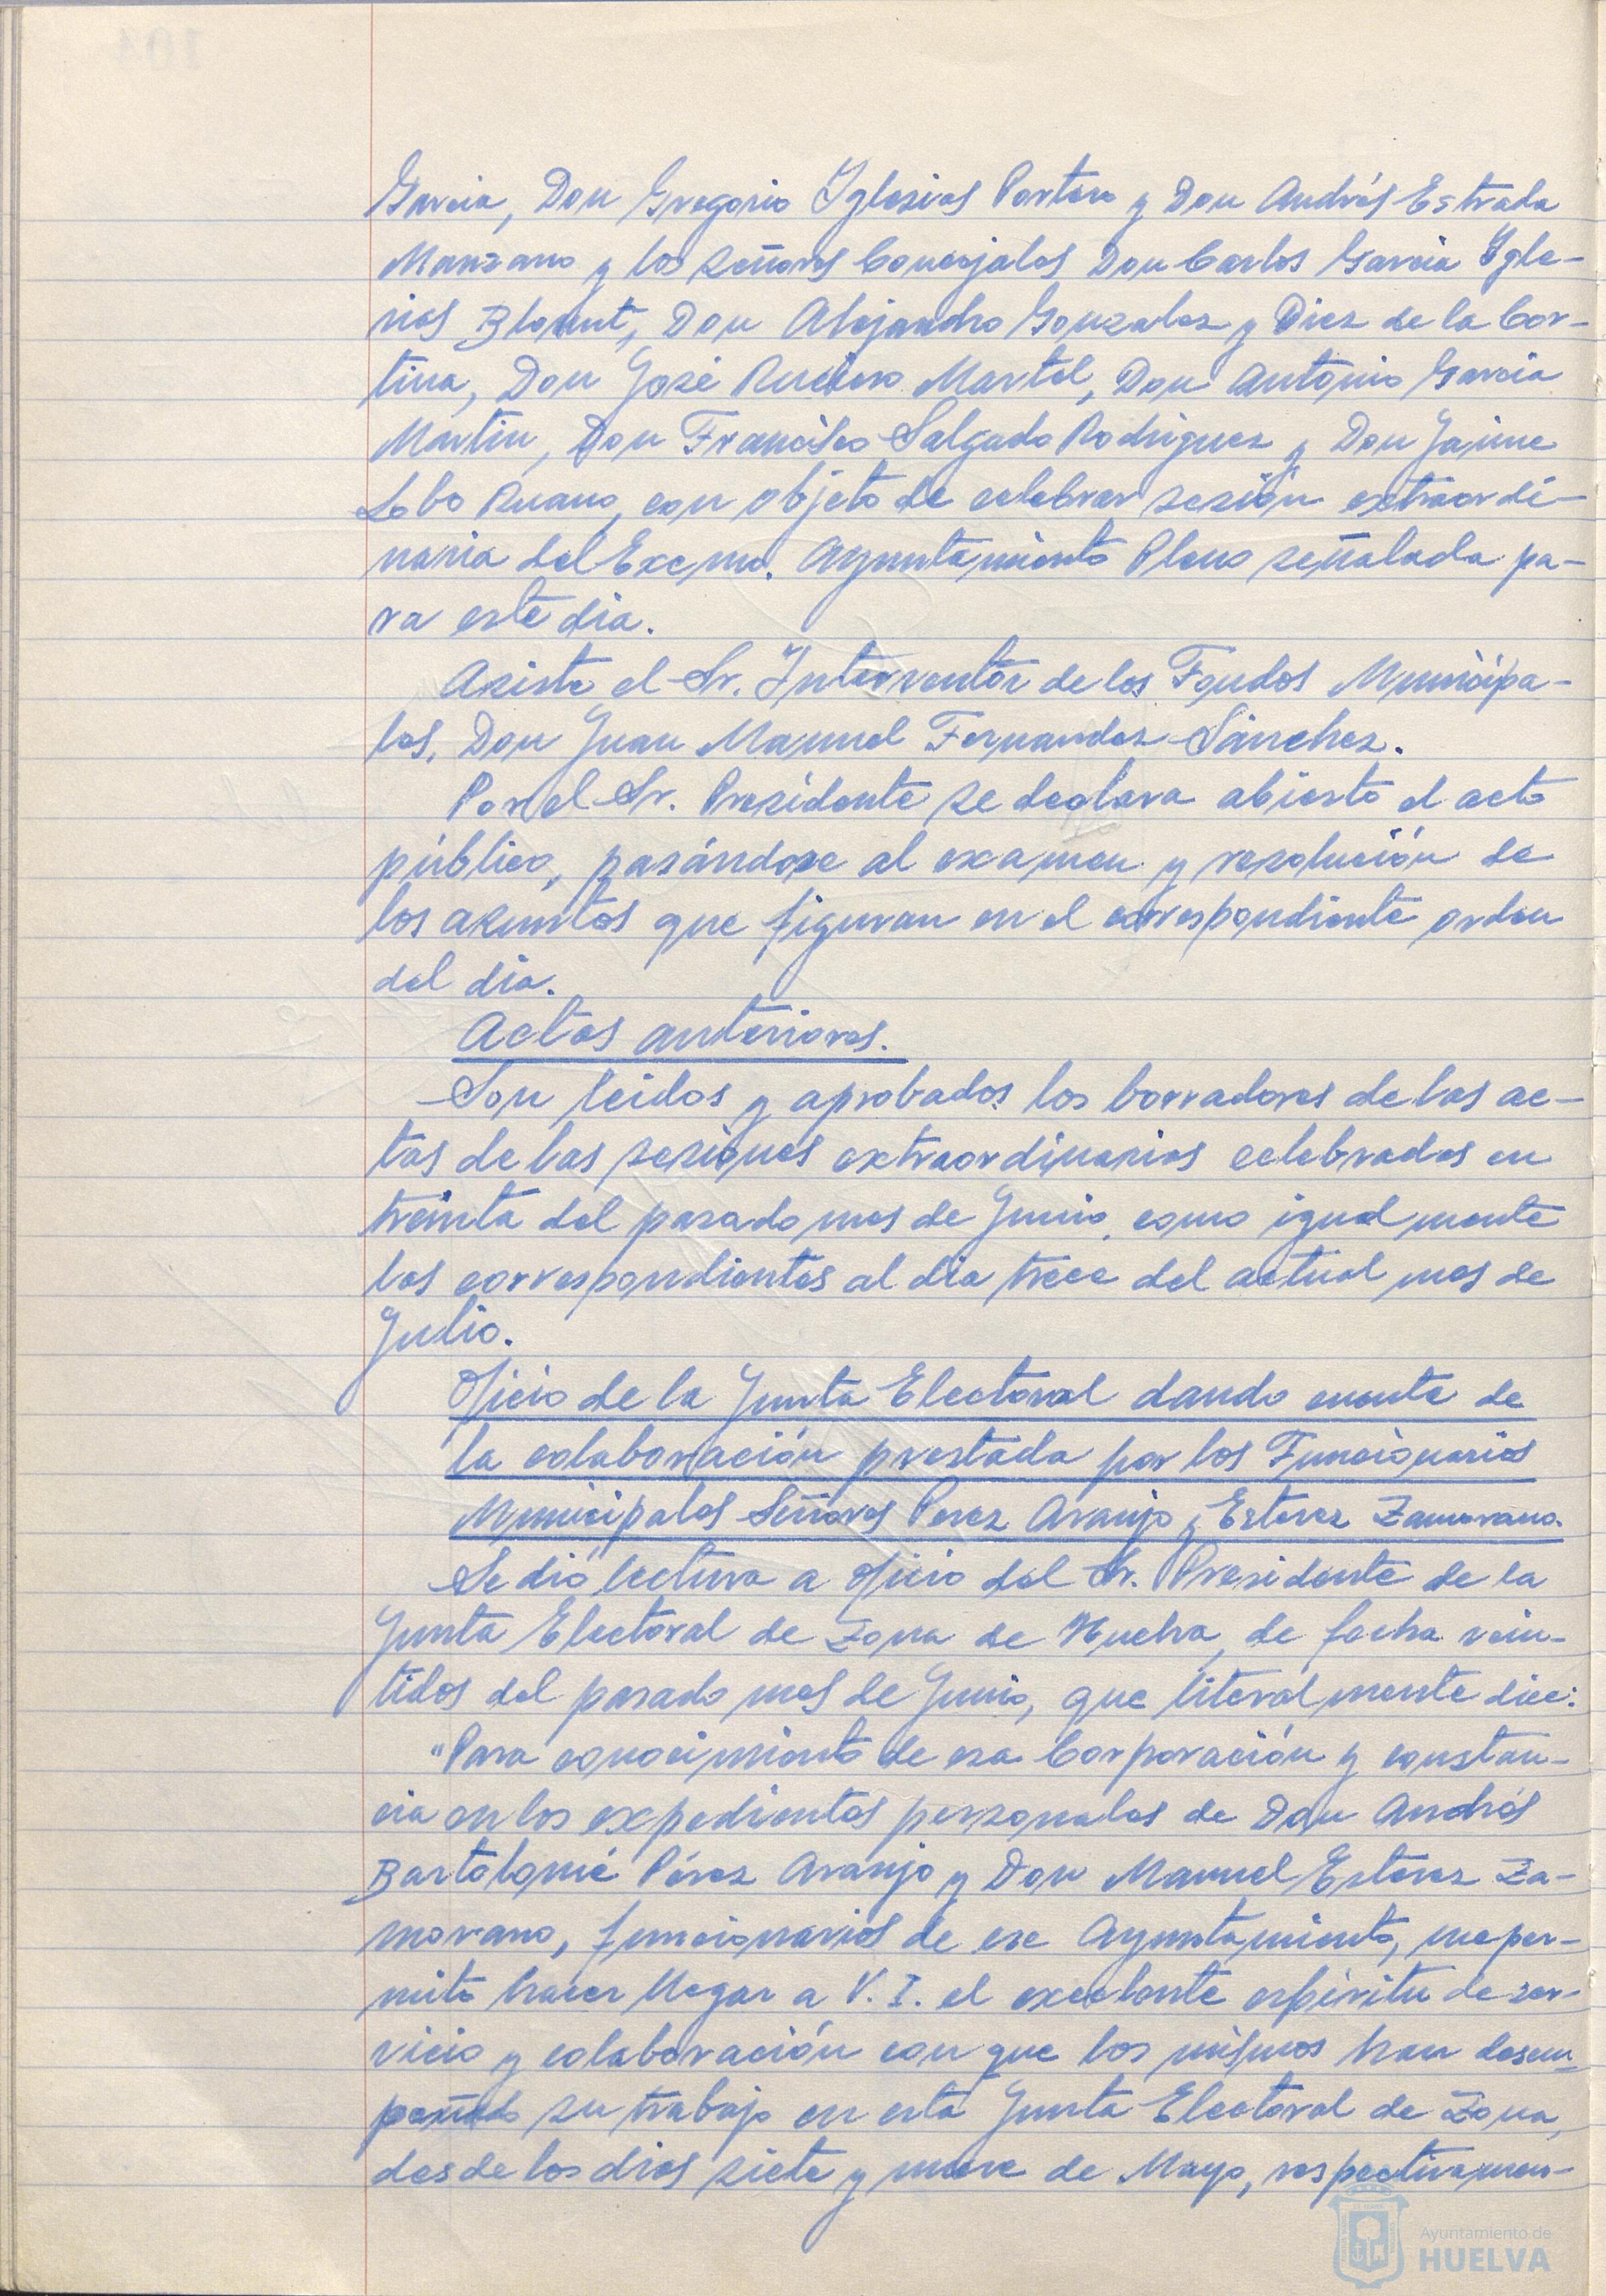 Garcia, Don Gregorio Yglesias Portero y Don Andrés Estrada
Manzano y los señores Concejales Don Carlos Garcia Ygle-
sias Blount, Don Alejandro Gonzalez y Diez de la Cor-
tina, Don José Ruciero Martel, Don Antonio Garcia
Martin, Don Francisco Salgado Rodriguez y Don Jaime
Lobo Ruano, con objeto de celebrar sesión extraordi-
naria del Excmo. Ayuntamiento Pleno señalada pa-
ra este dia.
Asiste el Sr. Interventor de los Fondos Municipa-
les, Don Juan Manuel Fernandez Sánchez.
Por el Sr. Presidente se declara abierto el acto
público, pasándose al examen y resolución de
los asuntos que figuran en el correspondiente orden
del dia.
Actas anteriores.
Son leidos y aprobados los borradores de las ac-
tas de las sesiones extraordinarias celebradas en
treinta del pasado mes de Junio, como igualmente
las correspondientes al dia trece del actual mes de
Julio.
Oficio de la Junta Electoral dando cuenta de
la colaboración prestada por los Funcionarios
Municipales Señores Perez Araujo y Estevez Zamorano.
Se dió lectura a oficio del Sr. Presidente de la
Junta Electoral de Zona de Huelva, de fecha vein-
tidos del pasado mes de Junio, que literalmente dice:
"Para conocimiento de esa Corporación y constan-
cia en los expedientes personales de Don Andrés
Bartolomé Pérez Araujo y Don Manuel Estevez Za-
morano, funcionarios de ese Ayuntamiento, me per-
mito hacer llegar a V. I. el excelente espiritu de ser-
vicio y colaboración con que los mismos han desem-
peñado su trabajo en esta Junta Electoral de Zona,
desde los dias siete y nueve de Mayo, respectivamen-
Ayuntamiento de
HUELVA